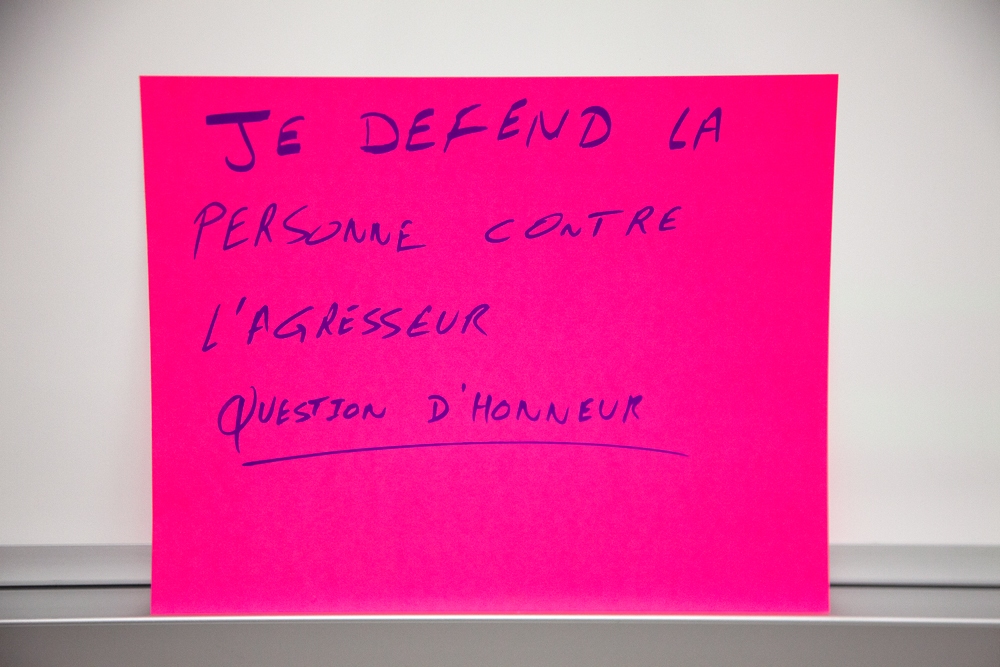 JE DEFEND LA
PERSONNE CONTRE
L'AGRESSEUR
QUESTION D'HONNEUR